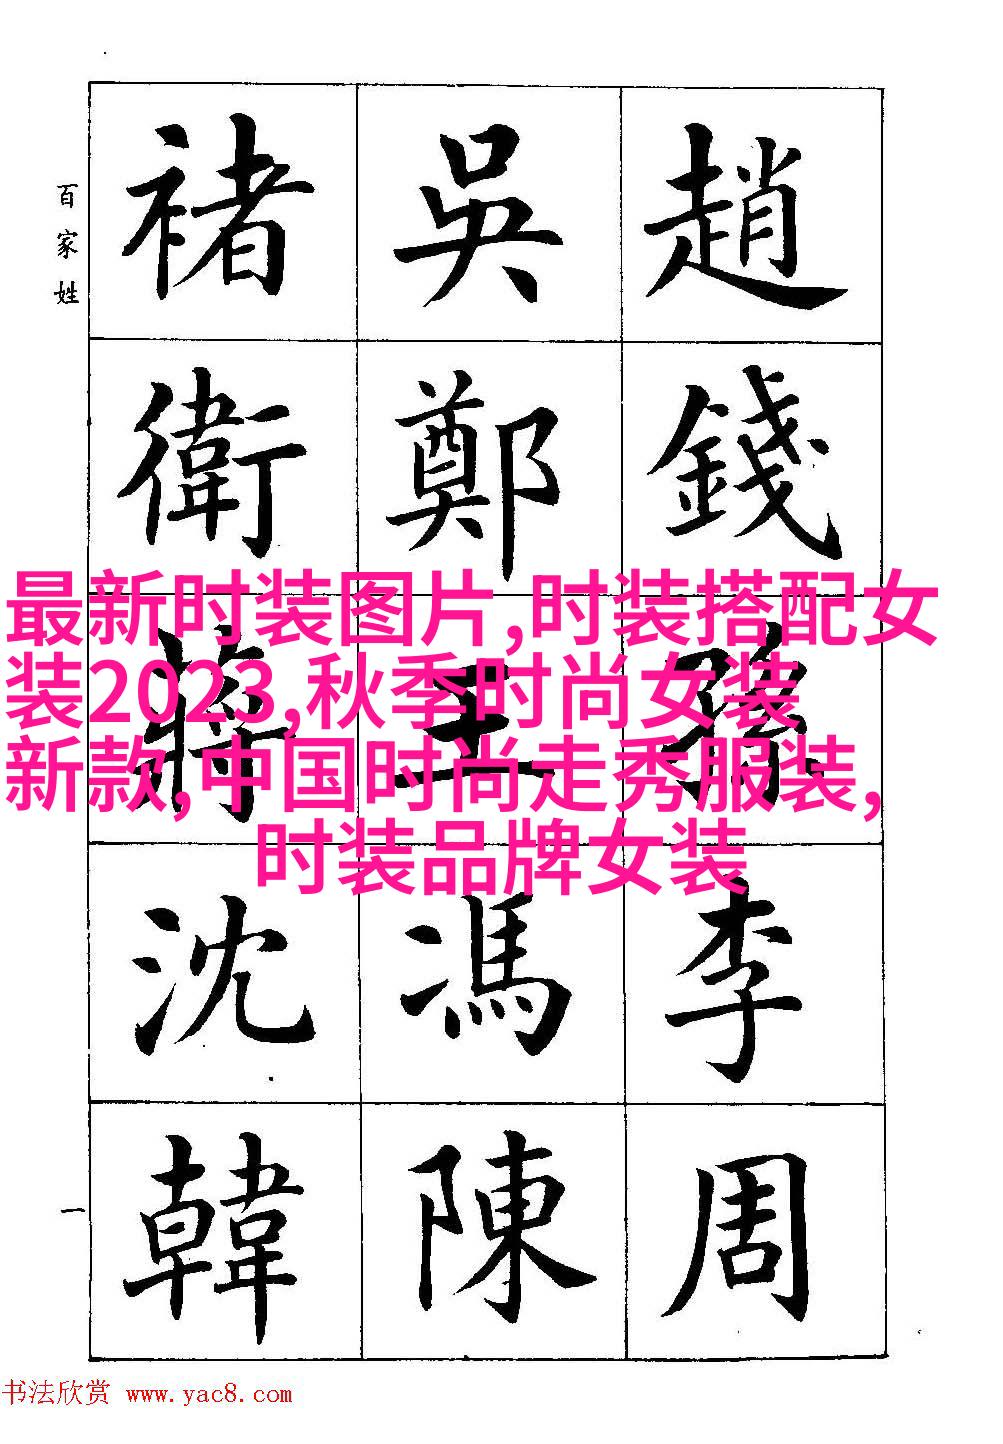 百家姓
趙錢孫李周
吳鄭王馮陳
褚衛蔣沈韓
一
最新时装图片,时装搭配女
装2023,秋季时尚女装
新款,中国时尚走秀服装,
时装品牌女装
书法欣赏 www.yac8.com